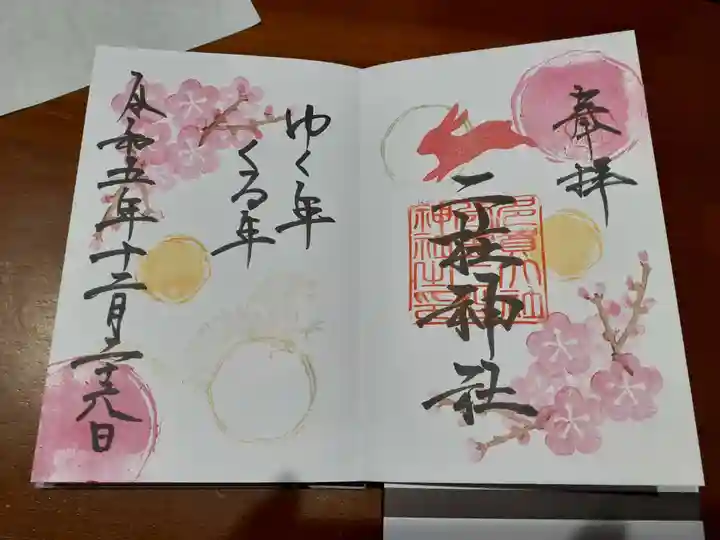 奉拝
二社神社
ゆく年
くる年
令和五年十二月二十八日